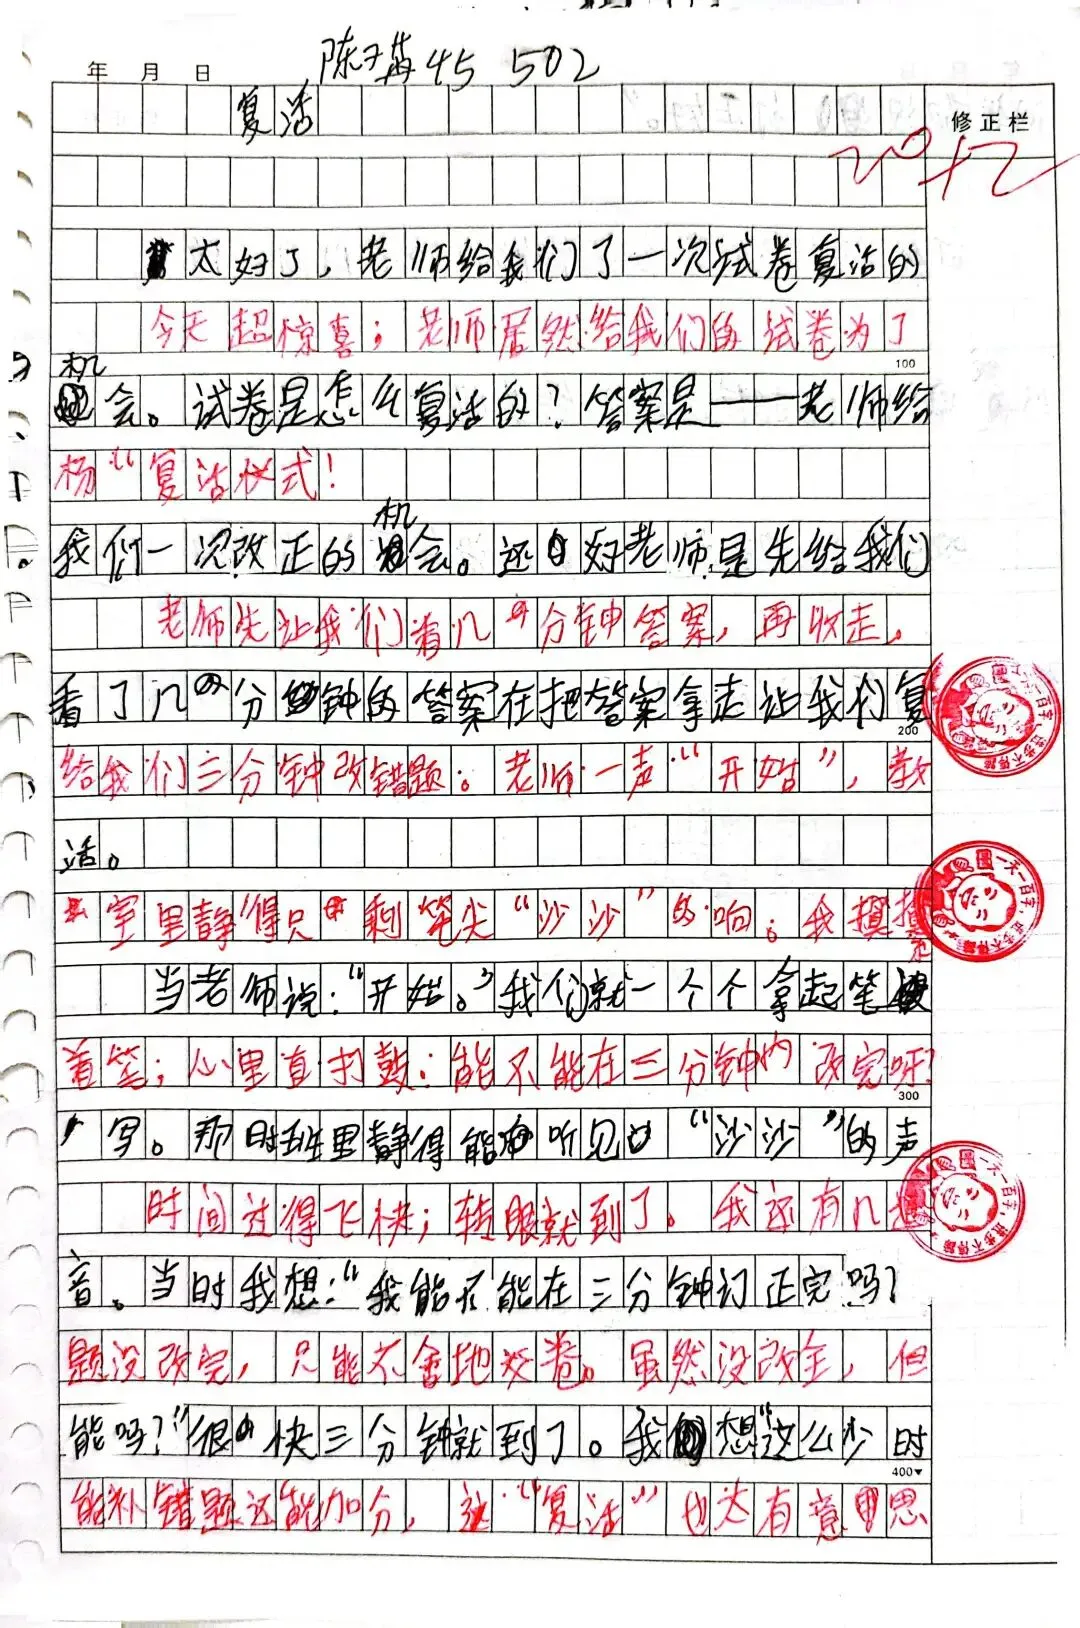 年 月 日
45 502
复活
修正栏
20+2
太好了，老师给我们了一次试卷复活的
今天超惊喜；老师居然给我们的试卷为了
100
机
会。试卷是怎么复活的？答案是——老师给
杨“复活仪式！
机
我们一次改正的会。还好老师是先给我们
老师先让我们看几分钟答案，再收走，
看了几分钟的答案在把答案拿走让我们复
200
给我们三分钟改错题。老师一声“开始”，教
活。
室里静得只剩笔尖“沙沙”的响。我摸摸
当老师说：“开始。”我们就一个个拿起笔
着笔；心里直打鼓：能不能在三分钟内改完呀？
300
写。那时班里静得能听见“沙沙”的声
时间过得飞快；转眼就到了。我还有几
音。当时我想：“我能不能在三分钟订正完吗？
题没改完，只能不舍地交卷。虽然没改全，但
能吗？”很快三分钟就到了。我想“这么少时
400
能补错题还能加分，这“复活”也太有意思